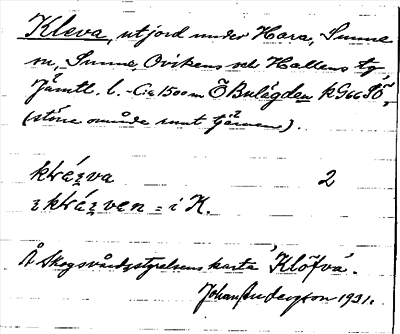 Kleva, utjord under Hara, Sunne
sn, Sunne, Ovikens och Hallens tg
Jämtl. l. - C:a 1500 m Ö Bulägden k G66 SÖ,
(större område runt tjärnen).
2
i K.
På Skogsvårdsstyrelsens karta 'Klöfva'.
Johan Anderzson 1931.